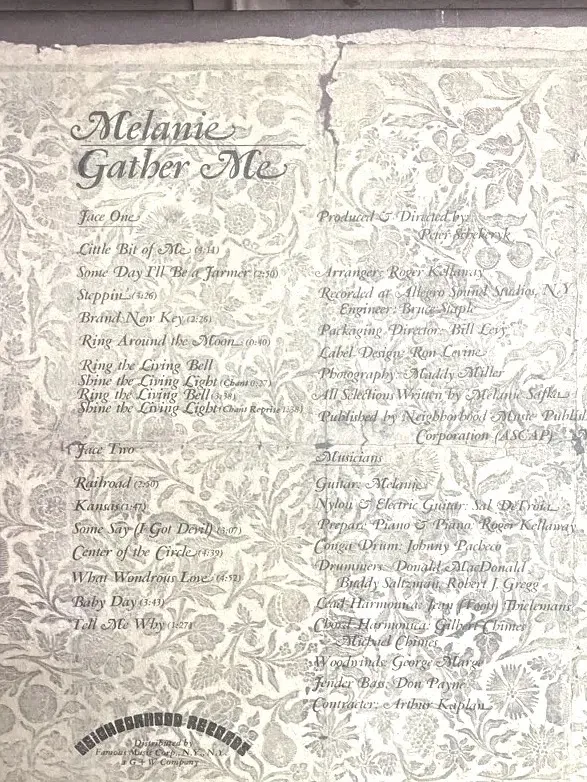 Melanie
Gather Me
Face One
Little Bit of Me (3:11)
Some Day I'll Be a Farmer (2:50)
Steppin' (3:26)
Brand New Key (2:26)
Ring Around the Moon (0:40)
Ring the Living Bell
Shine the Living Light (Chant 0:27)
Ring the Living Bell (3:38)
Shine the Living Light (Chant Reprise 1:38)
Face Two
Railroad (2:50)
Kansas (1:47)
Some Say (I Got Devil) (3:07)
Center of the Circle (4:39)
What Wondrous Love (4:52)
Baby Day (3:43)
Tell Me Why (3:27)
NEIGHBORHOOD RECORDS
Distributed by
Famous Music Corp., N.Y., N.Y.
a G + W Company
Produced & Directed by:
Peter Schekeryk
Arranger: Roger Kellaway
Recorded at Allegro Sound Studios, N.Y.
Engineer: Bruce Staple
Packaging Director: Bill Levy
Label Design: Ron Levine
Photography: Maddy Miller
All Selections Written by Melanie Safka
Published by Neighborhood Music Publis
Corporation (ASCAP)
Musicians
Guitar: Melanie
Nylon & Electric Guitar: Sal DeTroia
Prepare Piano & Piano: Roger Kellaway
Conga Drum: Johnny Pacheco
Drummers: Donald MacDonald
Buddy Saltzman, Robert J. Gregg
Lead Harmonica: Jean (Toots) Thielemans
Chord Harmonica: Gilbert Chimes
Michael Chimes
Woodwinds: George Marge
Fender Bass: Don Payne
Contracter: Arthur Kaplan